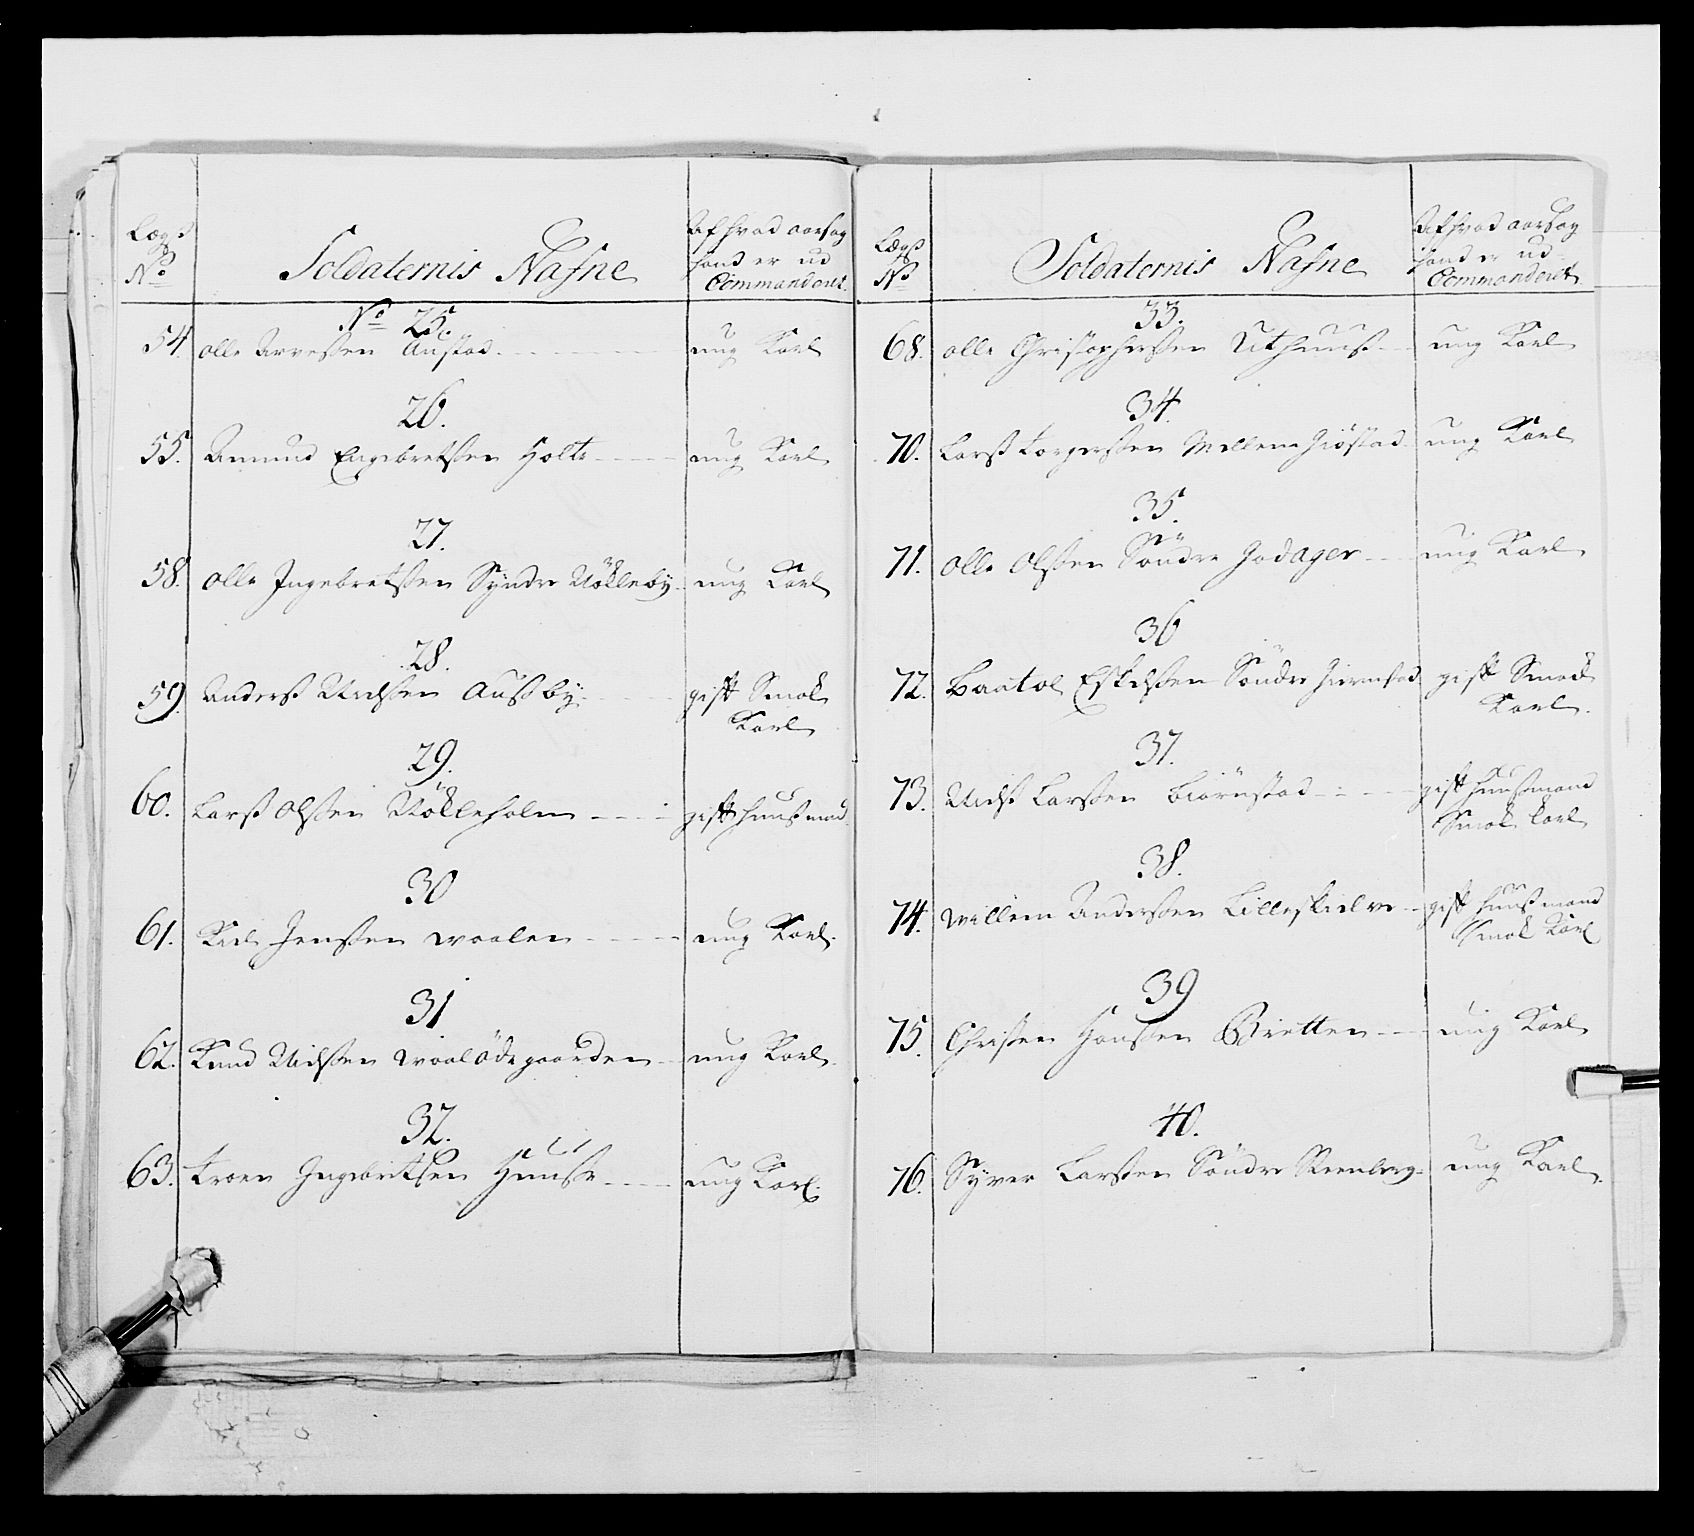 Lægs
No
Soldaternis Nafne
Af hvad aarsag
hand er ud
Commanderet
No 25.
54. olle Arnessen Austad ung Karl
26.
55. Amund Engebretssen Holte ung Karl
27.
58. olle Ingebretssen Syndre Nökleby ung Karl
28.
59. Anders Nielssen Aussby gift Smok
Karl
29.
60. Lars Olssen Nökleholm gift huusmand
30
61. Kiel Jenssen Waalen ung Karl
31
62. Knud Nielssen Waalödegaarden ung Karl
32.
63. Troen Ingebritssen Huuse ung Karl
Lægs
No
Soldaternis Nafne
Af hvad aarsag
hand er ud
Commanderet
33.
68. olle Christophersen Uthuus ung Karl
34.
70. Lars Torgerssen Mellem Giöstad ung Karl
35.
71. olle Olssen Söndre Jodager ung Karl
36
72. Baatol Eskelssen Söndre gift Smok
Karl
37.
73. Niels Larssen Biörnstad gift huusmand
Smok Karl
38.
74. Willem Anderssen Lilleskielve gift huusmand
Smok Karl
39
75. Christen Hanssen Bietten ung Karl
40.
76. Syver Larssen Söndre Steenberg ung Karl